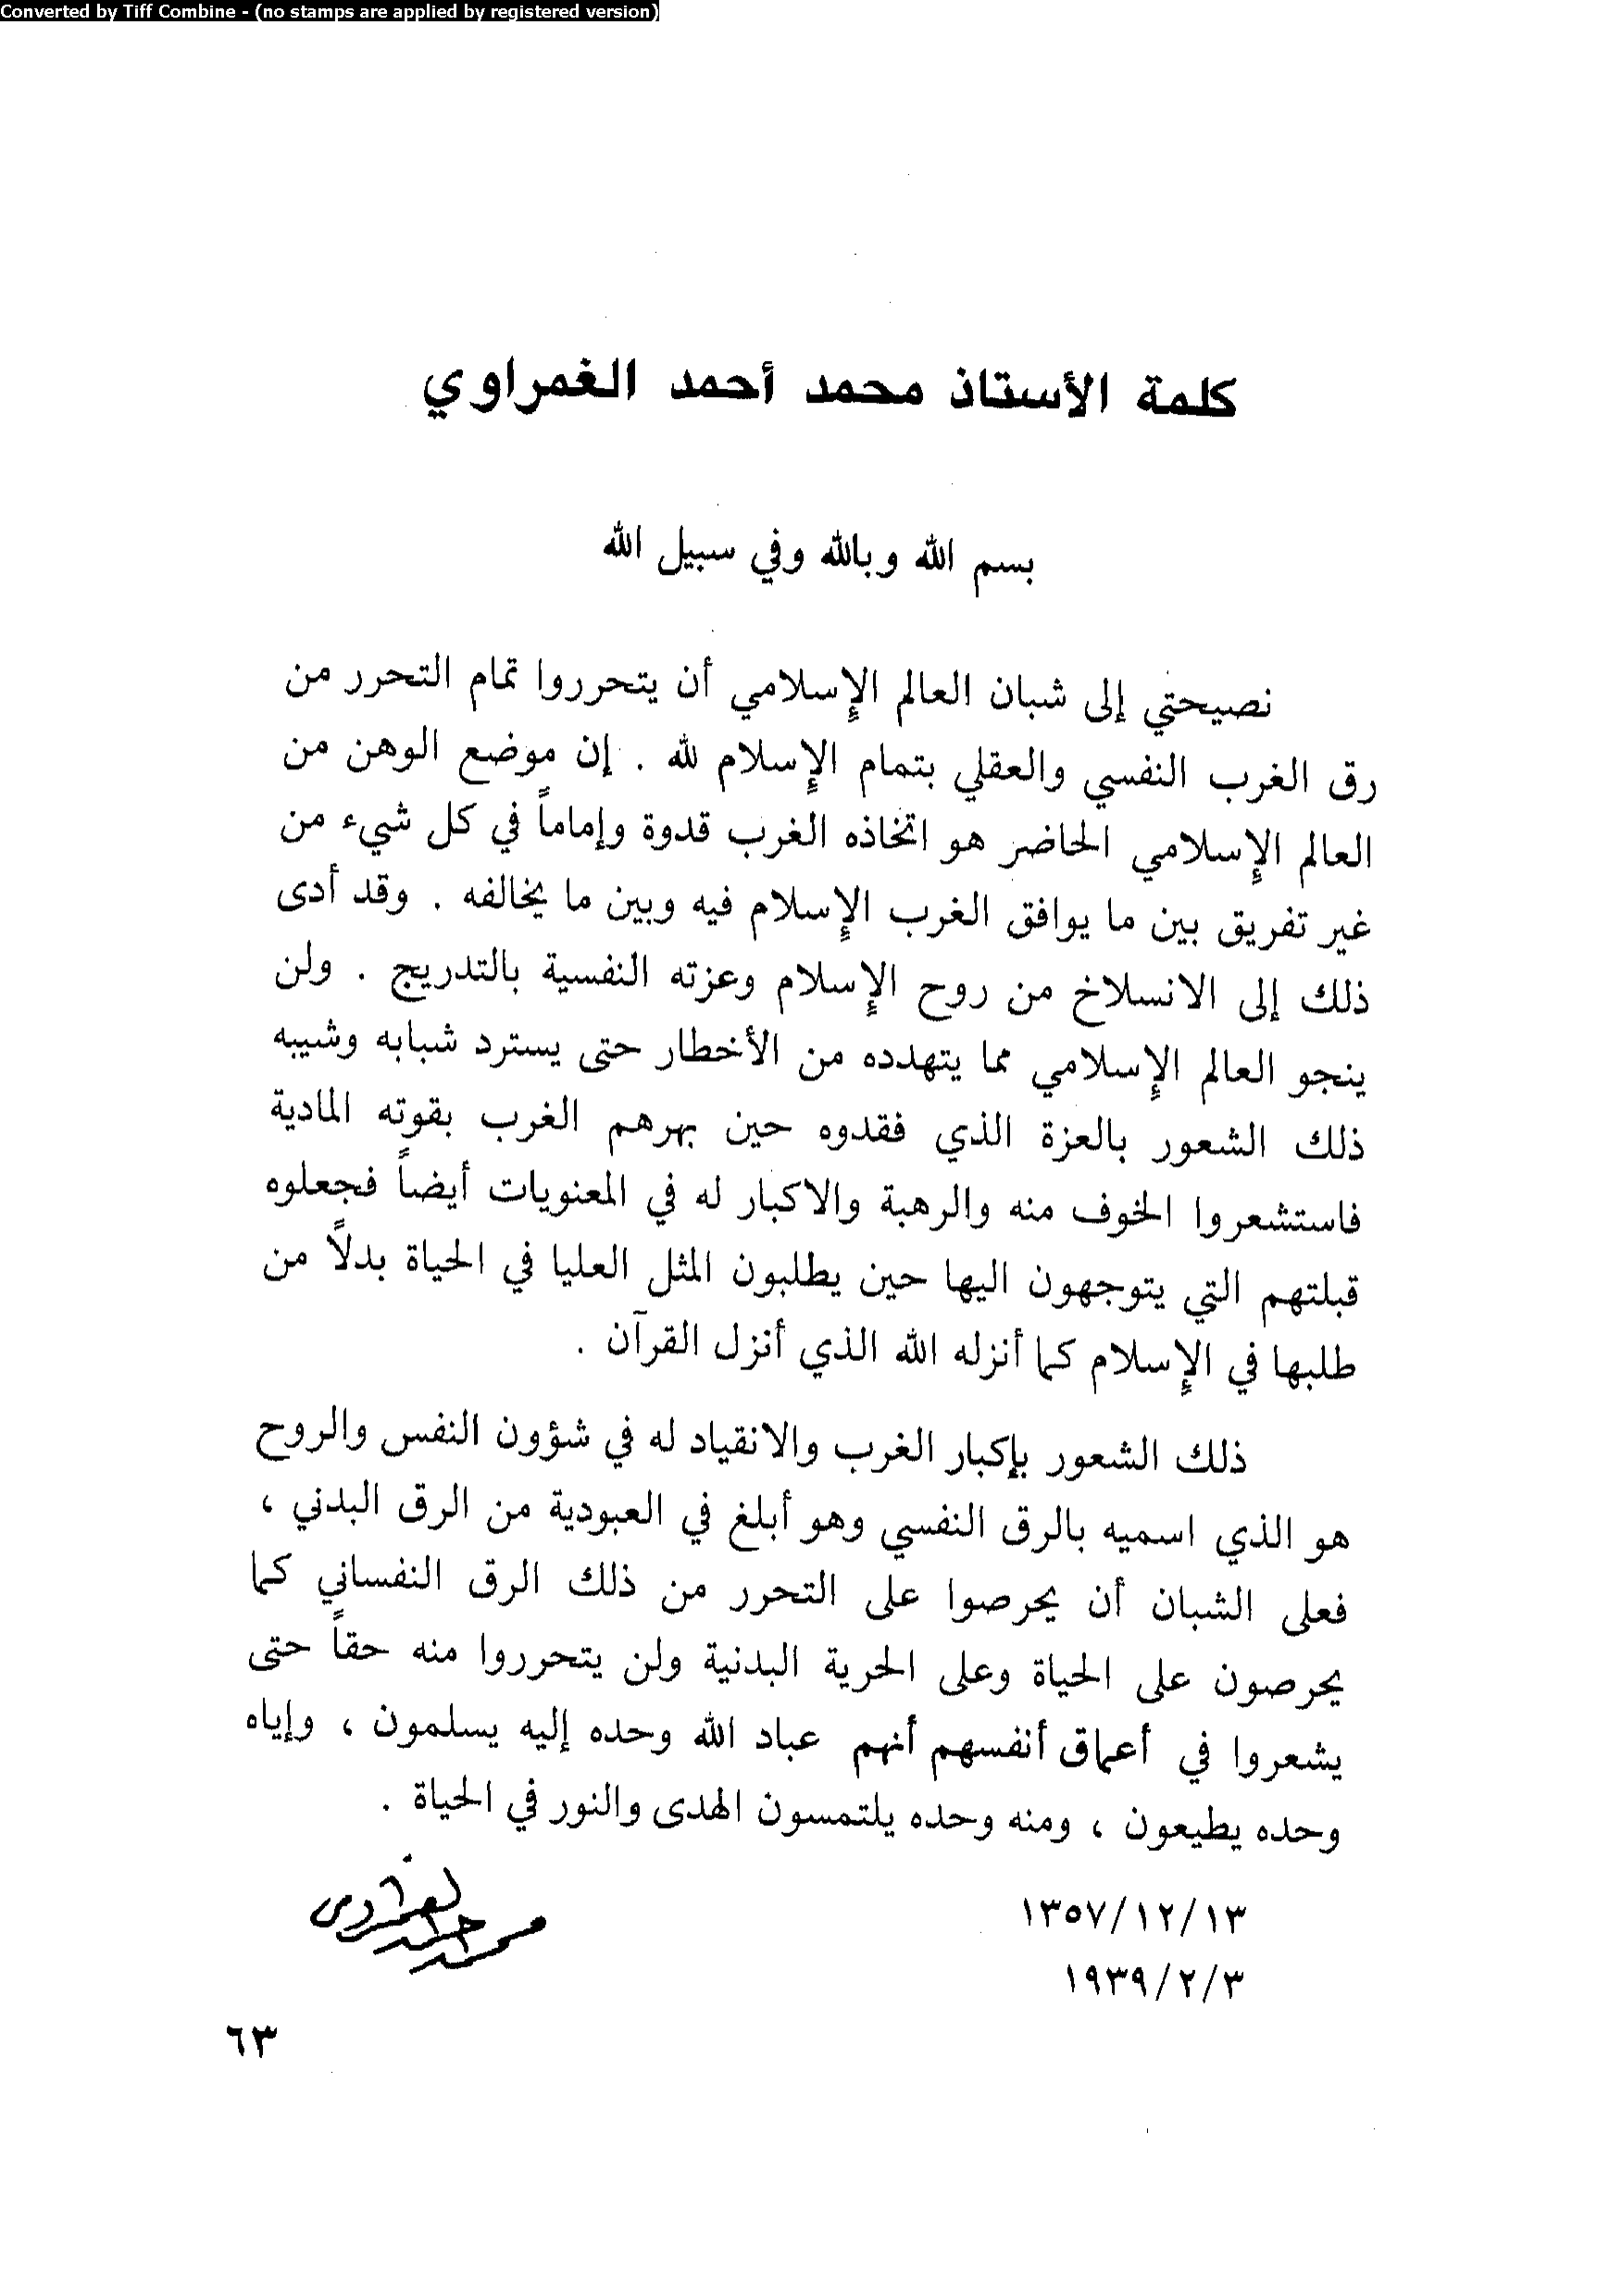 Converted by Tiff Combine - (no stamps are applied by registered version)
كلمة الأستاذ محمد أحمد الغمراوي
بسم الله وبالله وفي سبيل الله
نصيحتي إلى شبان العالم الإسلامي أن يتحرروا تمام التحرر من
رق الغرب النفسي والعقلي بتمام الإسلام لله . إن موضع الوهن من
العالم الإسلامي الحاضر هو اتخاذه الغرب قدوة وإماماً في كل شيء من
غير تفريق بين ما يوافق الغرب الإسلام فيه وبين ما يخالفه . وقد أدى
ذلك إلى الانسلاخ من روح الإسلام وعزته النفسية بالتدريج . ولن
ينجو العالم الإسلامي مما يتهدده من الأخطار حتى يسترد شبابه وشيبه
ذلك الشعور بالعزة الذي فقدوه حين بهرهم الغرب بقوته المادية
فاستشعروا الخوف منه والرهبة والاكبار له في المعنويات أيضاً فجعلوه
قبلتهم التي يتوجهون اليها حين يطلبون المثل العليا في الحياة بدلاً من
طلبها في الإسلام كما أنزله الله الذي أنزل القرآن .
ذلك الشعور بإكبار الغرب والانقياد له في شؤون النفس والروح
هو الذي اسميه بالرق النفسي وهو أبلغ في العبودية من الرق البدني ،
فعلى الشبان أن يحرصوا على التحرر من ذلك الرق النفساني كما
يحرصون على الحياة وعلى الحرية البدنية ولن يتحرروا منه حقاً حتى
يشعروا في أعماق أنفسهم أنهم عباد الله وحده إليه يسلمون ، وإياه
وحده يطيعون ، ومنه وحده يلتمسون الهدى والنور في الحياة .
١٣٥٧/١٢/١٣
محمد أحمد الغمراوى
١٩٣٩/٢/٣
٦٣